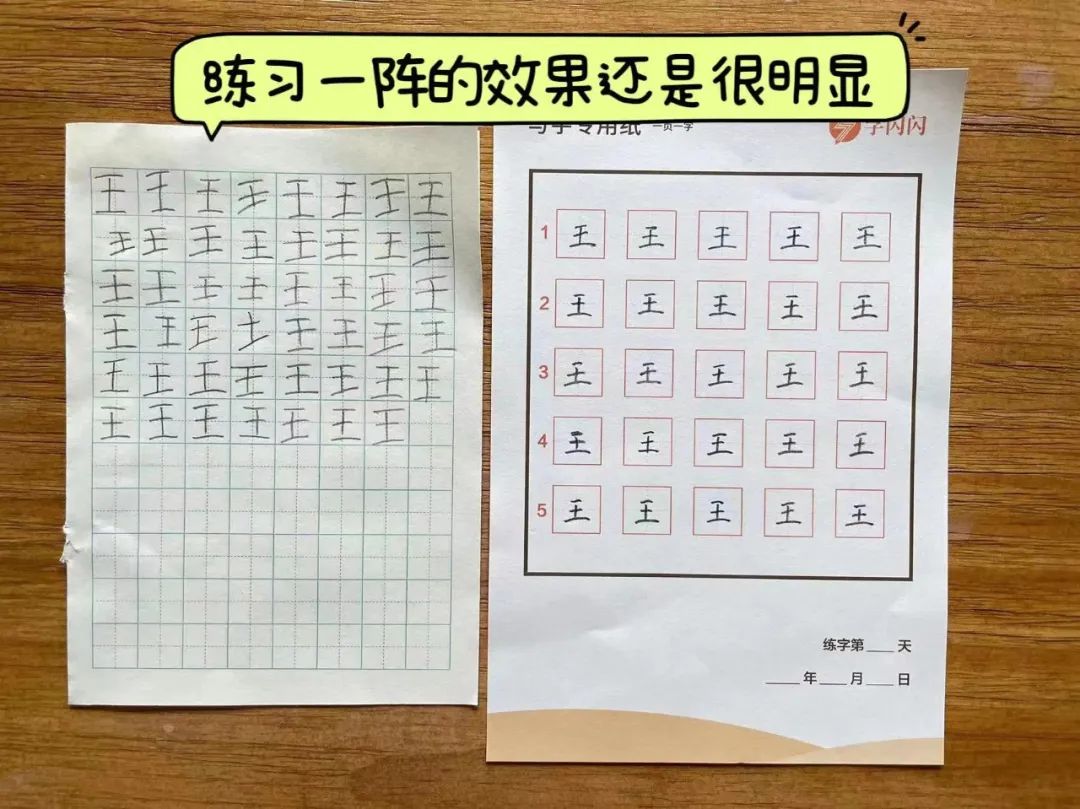 练习一阵的效果还是很明显
王王王王王王王王
王王王王王王王王
王王王王王王王王
王王王土王王王王
王王王王王王王王
王王王王王王王
写字专用纸 一页一字 学闪闪
1 王 王 王 王 王
2 王 王 王 王 王
3 王 王 王 王 王
4 王 王 王 王 王
5 王 王 王 王 王
练字第___天
____年___月___日